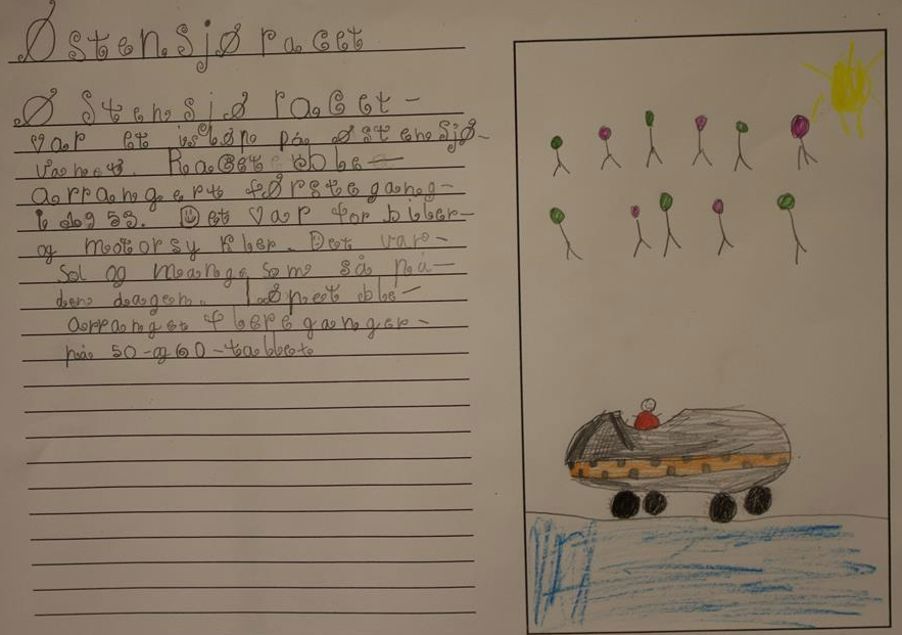 Østensjø racet
Østensjø racet –
var et isløp på Østensjø-
vanet. Racet ble –
arrangert første gang –
i 1953. Det var for biler –
og motorsykler. Det var –
sol og mange som så på –
den dagen. Løpet ble –
arranget flere ganger –
på 50-og 60-tallet